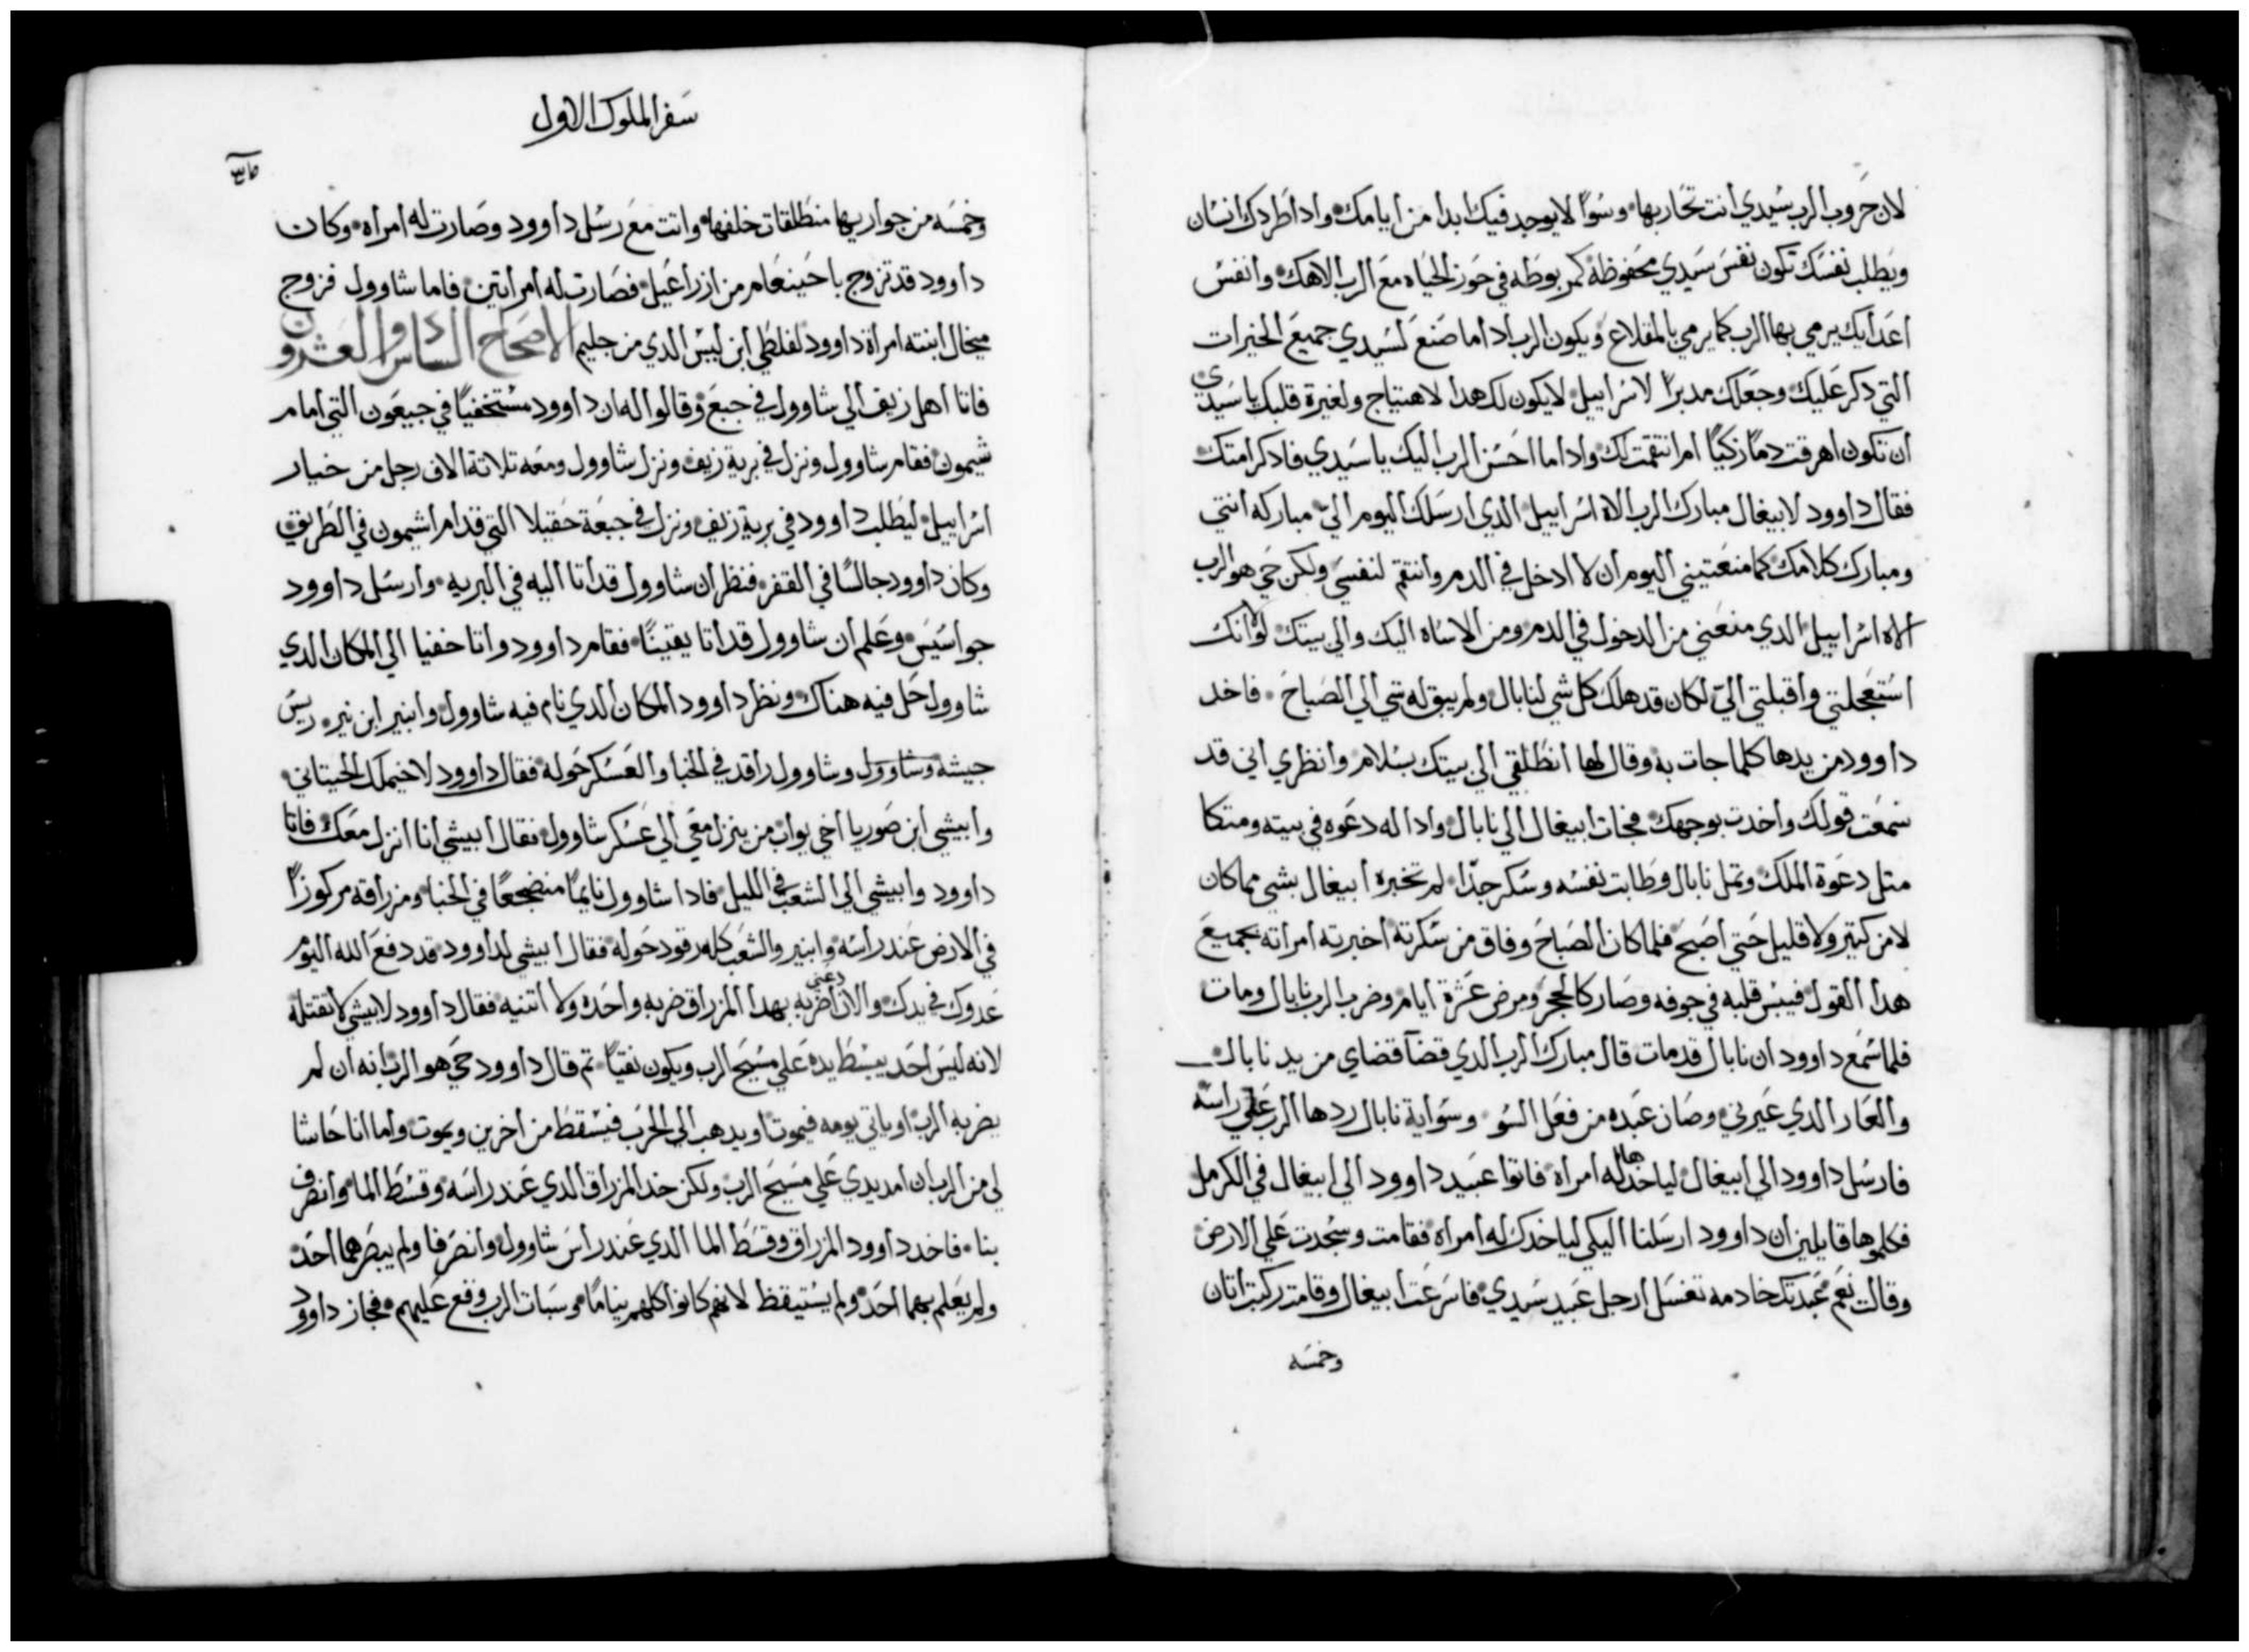 لان حروب الرب سيدي انت تحاربها وسوًا لا يوجد فيك ابدا من ايامك وادا طردك انسان
ويطلب نفسك تكون نفس سيدي محفوظة كمربوطه في حوز الحياه مع الرب الاهك وانفس
اعدايك يرمي بها الرب كما يرمي بالمقلاع ويكون الرب ادا ما صنع لسيدي جميع الخيرات
التي دكر عليك وجعلك مدبرًا لاسراييل لا يكون لك هدا لاهتياج ولغيرة قلبك يا سيدي
ان تكون اهرقت دمًا زكيًا ام انتقمت لك وادا ما احسن الرب اليك يا سيدي فادكر امتك
فقال داوود لابيغال مبارك الرب الاه اسراييل الدي ارسلك اليوم الي مباركه انتي
ومبارك كلامك كما منعتيني اليوم ان لا ادخل في الدم وانتقم لنفسي ولكن حي هو الرب
الاه اسراييل الدي منعني من الدخول في الدم ومن الاساه اليك والي بيتك لولا انك
استعجلتي واقبلتي الي لكان قد هلك كل شي لنابال ولم يبق له شي الي الصباح فاخد
داوود من يدها كلما جات به وقال لها انطلقي الي بيتك بسلام وانظري اني قد
سمعت قولك واخدت بوجهك فجات ابيغال الي نابال وادا له دعوه في بيته ومتكا
متل دعوة الملك وتمل نابال وطابت نفسه وسكر جدًا لم تخبره ابيغال بشي مما كان
لا من كتير ولا قليل حتي اصبح فلما كان الصباح وفاق من سكرته اخبرته امراته بجميع
هدا القول فيبس قلبه في جوفه وصار كالحجر ومرض عشرة ايام وضرب الرب نابال ومات
فلما سمع داوود ان نابال قد مات قال مبارك الرب الدي قضآ قضاي من يد نابال
والعار الدي عيرني وصان عبده من فعل السو وسواية نابال ردها الرب علي راسه
فارسل داوود الي ابيغال لياخدها له امراه فاتوا عبيد داوود الي ابيغال في الكرمل
فكلموها قايلين ان داوود ارسلنا اليكي لياخدك له امراه فقامت وسجدت علي الارض
وقالت نعم عبدتك خادمه تغسل ارجل عبيد سيدي فاسرعت ابيغال وقامت ركبت اتان
وخمسه
سفر الملوك الاول
وخمسه من جواريها منطلقات خلفها واتت مع رسل داوود وصارت له امراه وكان
داوود قد تزوج باحينعام من ازراعيل فصارت له امراتين فاما شاوول فزوج
ميخال ابنته امراة داوود لفلطي ابن ليس الدي من جليم الاصحاح السادس والعشرون
فاتا اهل زيف الي شاوول في جبع وقالوا له ان داوود مستخفيًا في جبعون التي امام
شيمون فقام شاوول ونزل في برية زيف ونزل شاوول ومعه تلاتة الاف رجل من خيار
اسراييل ليطلب داوود في برية زيف ونزل في جبعة حقيلا التي قدام اشيمون في الطريق
وكان داوود جالسًا في القفر فنظر ان شاوول قد اتا اليه في البريه وارسل داوود
جواسيس وعلم ان شاوول قد اتا يقينًا فقام داوود واتا خفيا الي المكان الدي
شاوول حل فيه هناك ونظر داوود المكان الدي نام فيه شاوول وابنير ابن نير ريس
جيشه وشاوول وشاوول راقد في الخبا والعسكر حوله فقال داوود لاخيملك الحيتاني
وابيشي ابن صوريا اخي يواب من ينزل معي الي عسكر شاوول فقال ابيشي انا انزل معك فاتا
داوود وابيشي الي الشعب في الليل فادا شاوول نايمًا منضجعًا في الخبا ومزراقه مركوزًا
في الارض عند راسه وابنير والشعب كله رقود حوله فقال ابيشي لداوود قد دفع الله اليوم
عدوك في يدك والان دعني اضربه بهدا المزراق ضربه واحده ولا اتنيه فقال داوود لابيشي لا تقتله
لانه ليس احد يبسط يده علي مسيح الرب ويكون نقيًا تم قال داوود حي هو الرب انه ان لم
يضربه الرب او ياتي يومه فيموت او يدهب الي الحرب فيسقط من اخرين ويموت واما انا حاشا
لي من الرب ان امد يدي علي مسيح الرب ولكن خد المزراق الدي عند راسه وقسط الما وانصرف
بنا فاخد داوود المزراق وقسط الما الدي عند راس شاوول وانصرفا ولم يبصرهما احد
ولم يعلم بهما احد ولم يستيقظ لانهم كانوا كلهم نيامًا وسبات الرب وقع عليهم فجاز داوود